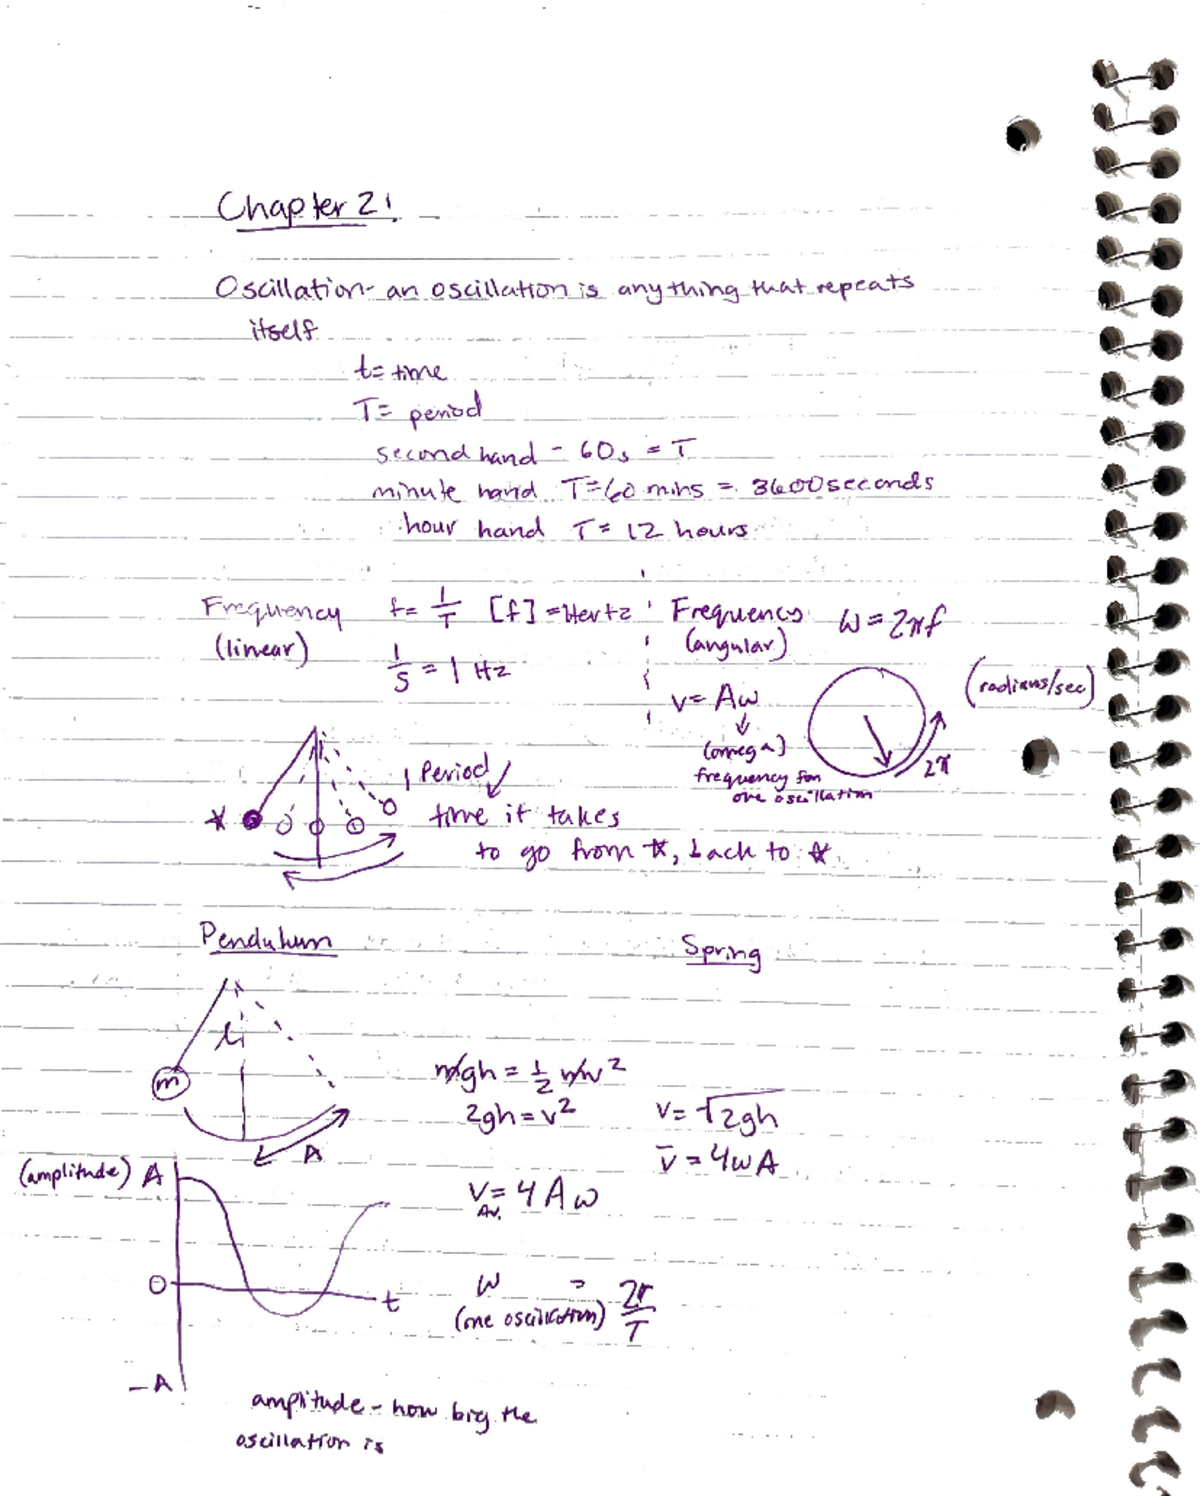 Chapter 2:
Oscillation - an oscillation is anything that repeats
itself
t = time
T = period
second hand - 60s = T
minute hand T = 60 mins = 3600 seconds
hour hand T = 12 hours
Frequency f = 1/T [f] = Hertz
(linear)
1/s = 1 Hz
Frequency ω = 2πf
(angular)
(radians/sec)
v = Aω
(omega)
frequency for
one oscillation
2π
1 Period
time it takes
to go from ☆, back to ☆
Pendulum
Spring
l
m
A
mgh = 1/2 mv²
2gh = v²
v = √2gh
v̄ = 4ωA
(amplitude) A
v = 4Aω
Av.
0
t
ω = 2π/T
(one oscillation)
-A
amplitude - how big the
oscillation is